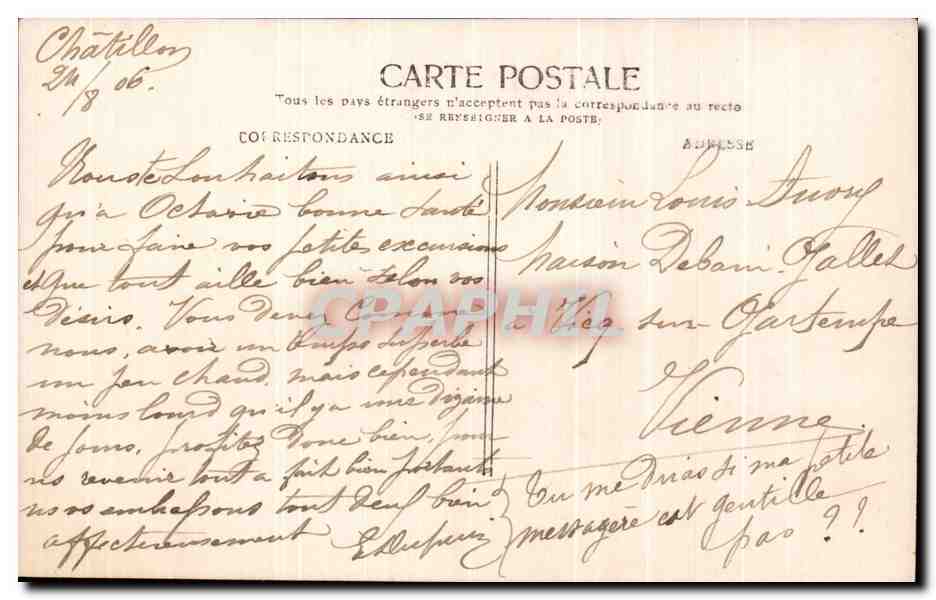 Châtillon
24/8 06.
CARTE POSTALE
Tous les pays étrangers n'acceptent pas la correspondance au recto
(SE RENSEIGNER A LA POSTE)
CORRESPONDANCE
Nous te souhaitons ainsi
qu'a Octavie bonne santé
pour faire vos petites excursions
et que tout aille bien selon vos
désirs. Vous devez comme
nous, avoir un temps superbe
un peu chaud, mais cependant
moins lourd qu'il y a une dizaine
de jours, profitez donc bien, pour
ns revenir tout a fait bien portants
ns vs embrassons tout deux bien
affectueusement EDupuis
ADRESSE
Monsieur Louis
Maison Debain-Gallet
a Vicq sur Gartempe
Vienne.
Tu me diras si ma petite
messagère est gentille
pas ??
CPAPHIL